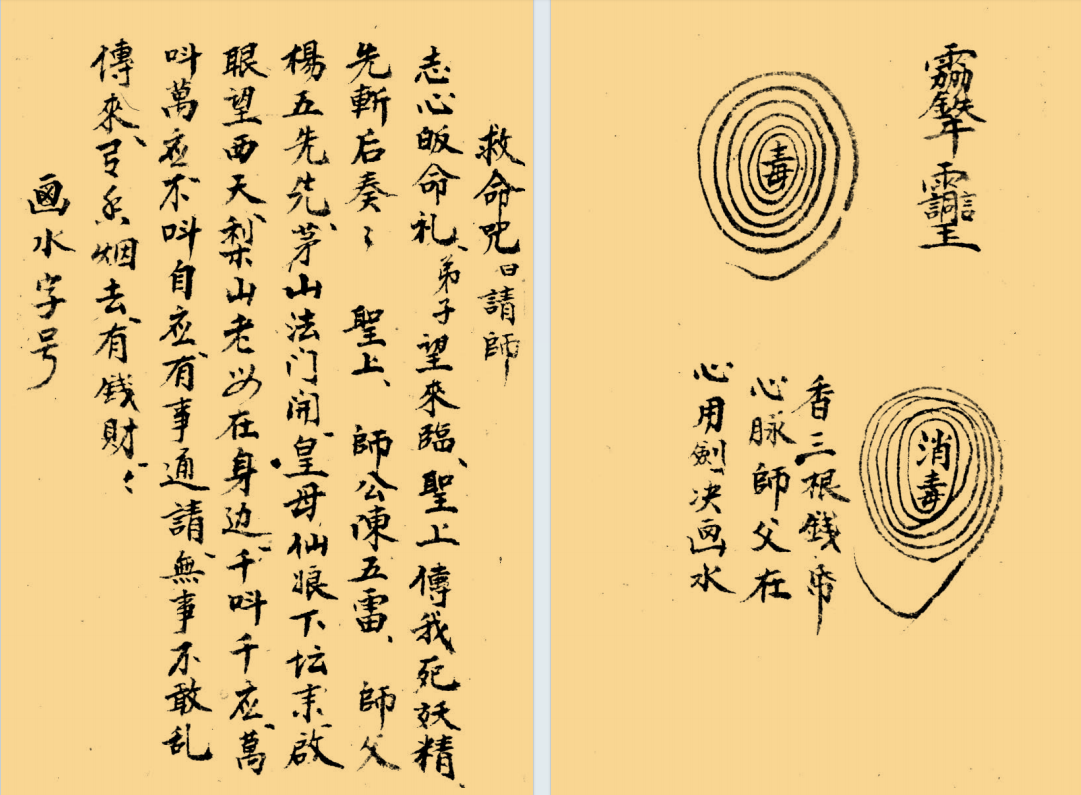 救命咒曰請師
志心皈命礼、弟子望來臨、聖上傳我死妖精、
先斬后奏〻 聖上、師公陳五雷、師父
楊五先先、茅山法门開、皇母仙娘下坛耒、啟
眼望西天、梨山老母在身边、千叫千应、萬
叫萬应、不叫自应、有事通請、無事不敢乱
傳來、弓香烟去、有钱財〻
画水字号
毒
消毒
香三根钱帋
心脉師父在
心用劍决画水